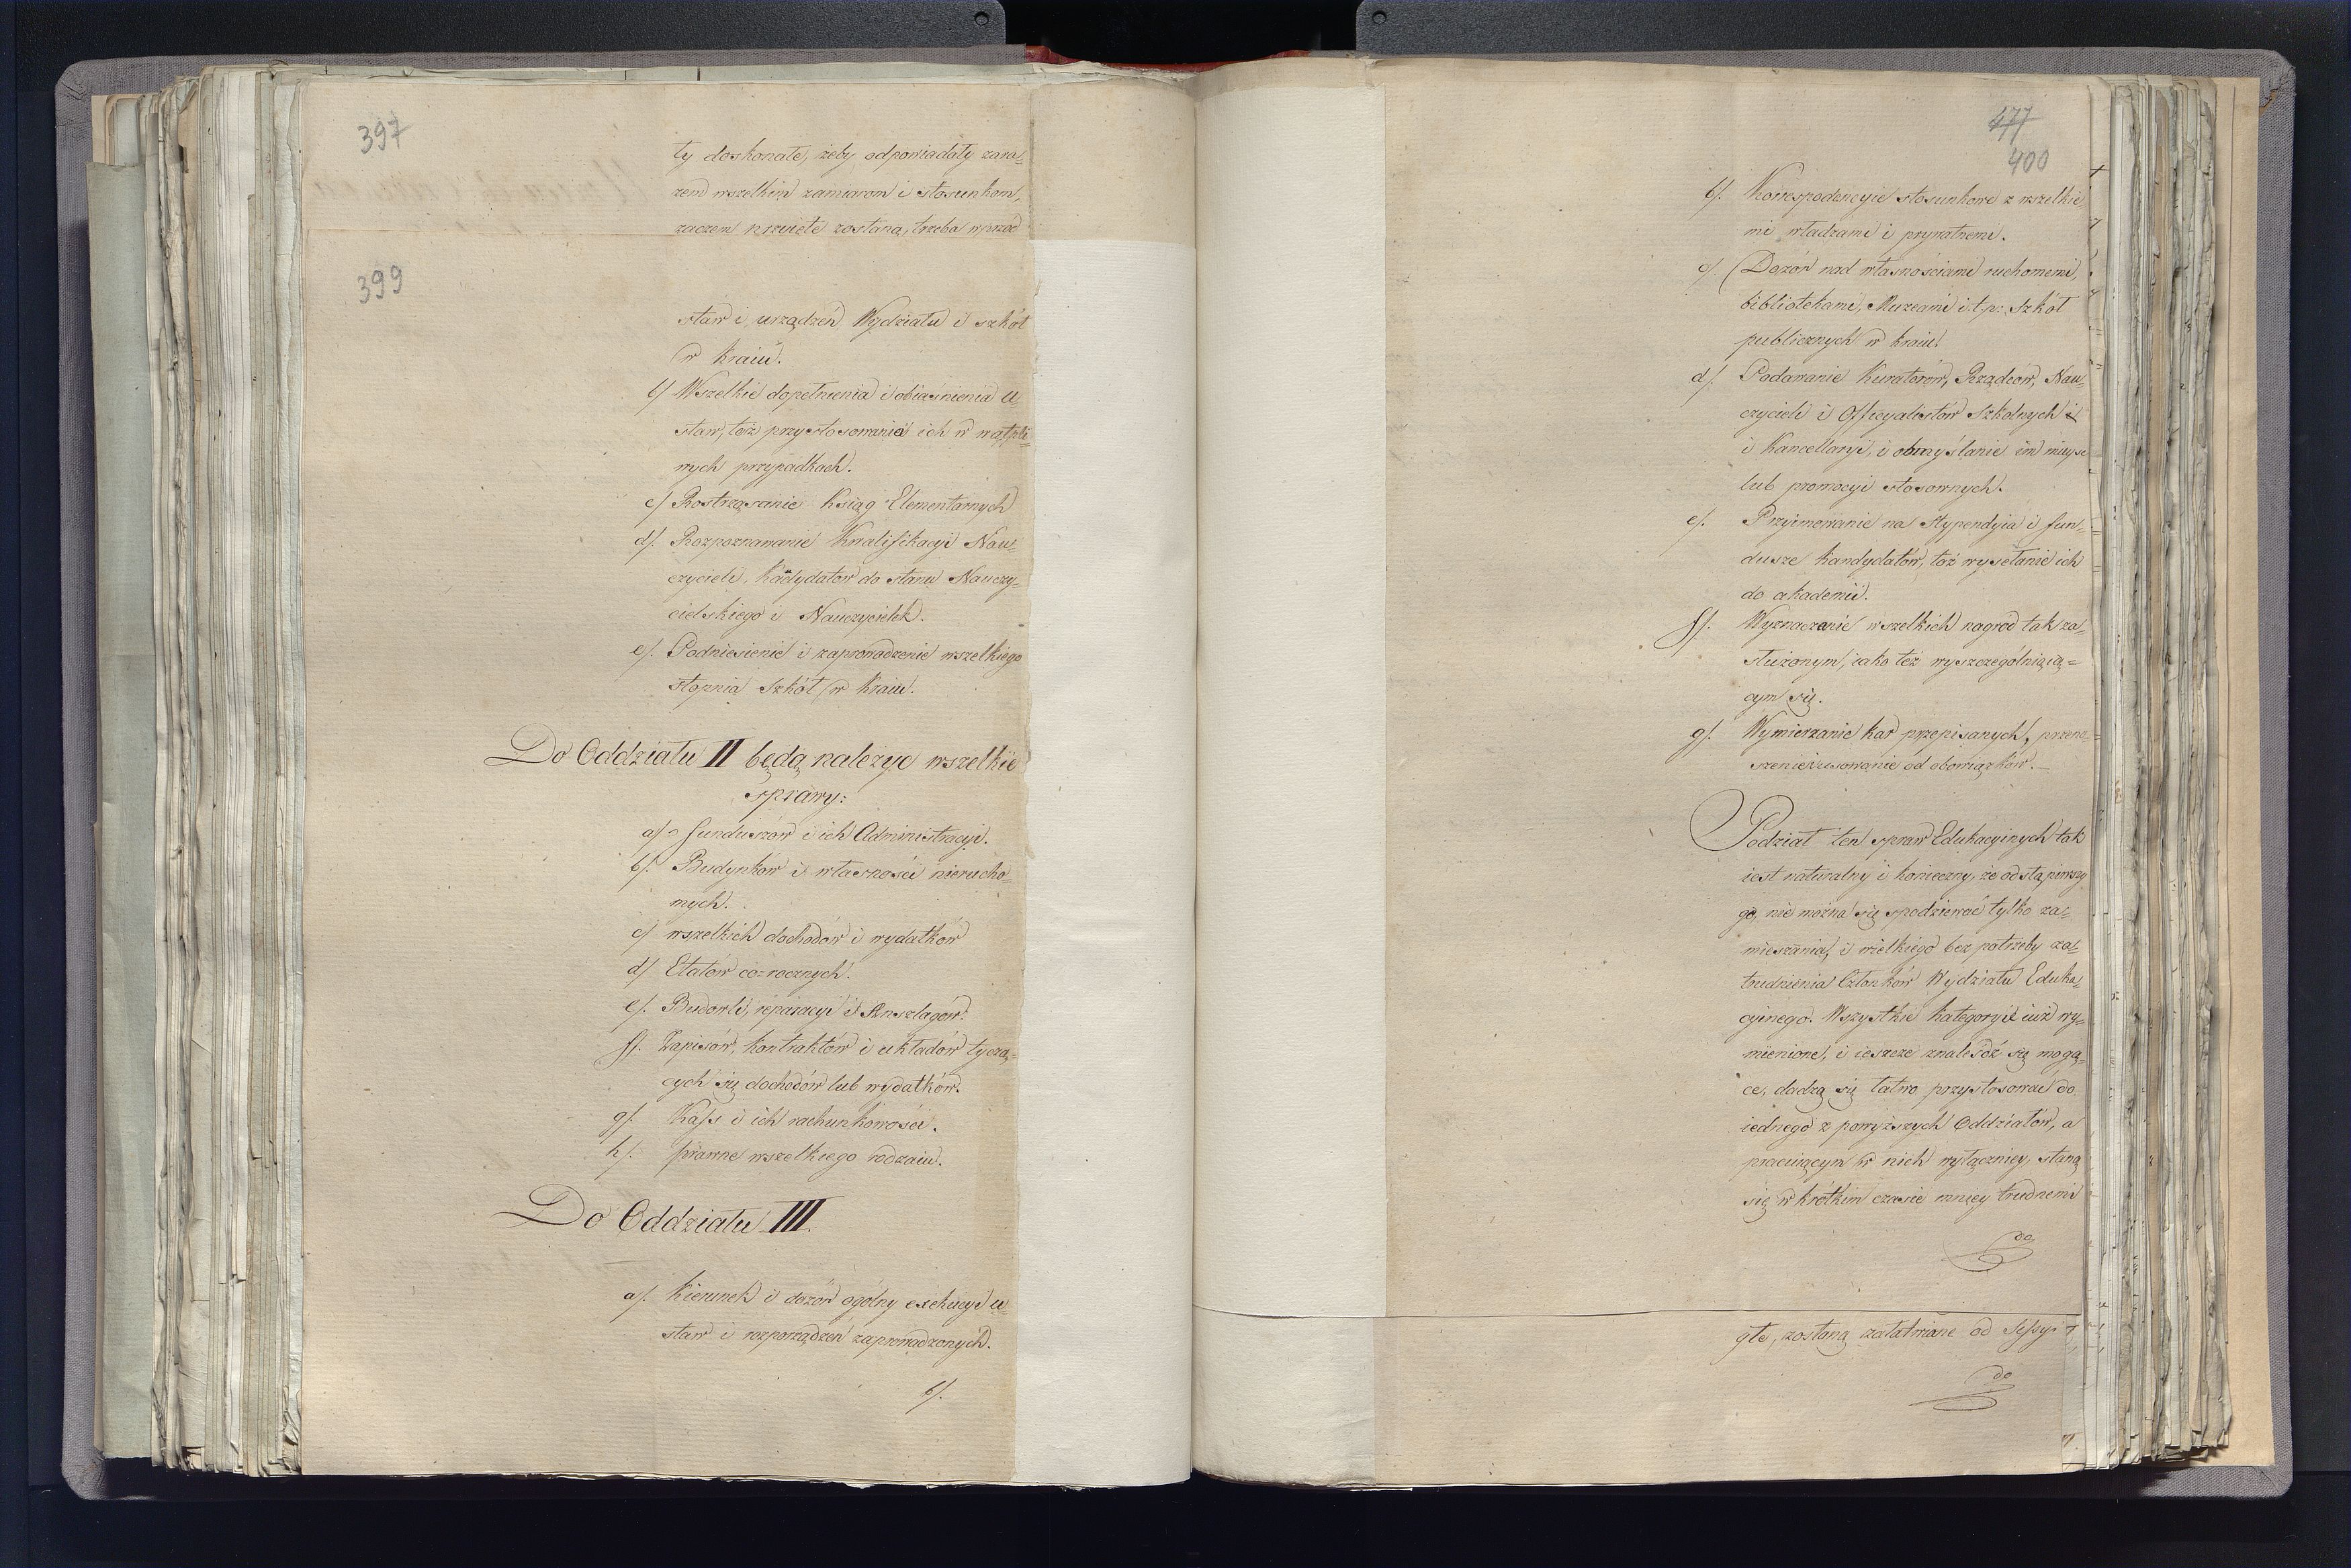 397
ty doskonałe, żeby odpowiadały zara=
zem wszelkim zamiarom i stosunkom,
zaczem przyięte zostaną, trzeba wprzód
399
staw i urządzeń Wydziału i szkół
w kraiu.
b/ Wszelkie dopełnienia i obiaśnienia u=
staw, toż przystosowania ich w wątpli=
wych przypadkach.
c/ Rostrząsanie Ksiąg Elementarnych
d/. Rozpoznawanie Kwalifikacyi Nau=
czycieli, Kadydatow do stanu Nauczy=
cielskiego i Nauczycielek.
e/. Podniesienie i zaprowadzenie wszelkiego
stopnia szkół w kraiu.
Do Oddziału II będą należyc wszelkie
sprawy:
a/ funduszów i ich Administracyi.
b/. Budynków i własności nierucho=
mych.
c/ wszelkich dochodów i wydatków
d/. Etatów co=rocznych.
e/. Budowli, reparacyi i Anszlagów.
f/. Zapisów, kontraktów i układów tyczą=
cych się dochodów lub wydatków.
g/. Kass i ich rachunkowości.
h/. prawne wszelkiego rodzaiu.
Do Oddziału III.
a/. Kierunek i dozór ogólny exekucyi u=
staw i rozporządzeń zaprowadzonych.
b/.
477
400
b/. Korrespodencyie stosunkowe z wszelkie=
mi władzami i prywatnemi.
c/. Dozór nad własnościami ruchomemi,
bibliotekami, Muzeami i.t.p: Szkół
publicznych w kraiu.
d/. Podawanie Kuratorów, Rządców, Nau=
czycieli i Officyalistów Szkolnych i
i Kancellaryi, i obmyślanie im mieysc
lub promocyi stosownych.
e/. Przyimowanie na stypendyia i fun=
dusze kandydatów, toż wysełanie ich
do akademii.
f/. Wyznaczanie wszelkich nagród tak za=
służonym, iako też wyszczególniaią=
cym się.
g/. Wymierzanie kar przepisanych, przeno=
szenie i usowanie od obowiązków.
Podział ten spraw Edukacyinych tak
iest naturalny i konieczny, że odstąpiwszy
go, nie można się spodziewać tylko za=
mieszania, i wielkiego bez potrzeby za=
trudnienia Członków Wydziału Eduka=
cyinego. Wszystkie kategoryie iuż wy=
mienione, i ieszcze znaleśdź się mogą=
ce, dadzą się łatwo przystosować do
iednego z powyższych Oddziałów, a
pracuiącym w nich wyłączniey, staną
się w krótkim czasie mniey trudnemi
do
głe, zostaną załatwiane od Sessyi
do